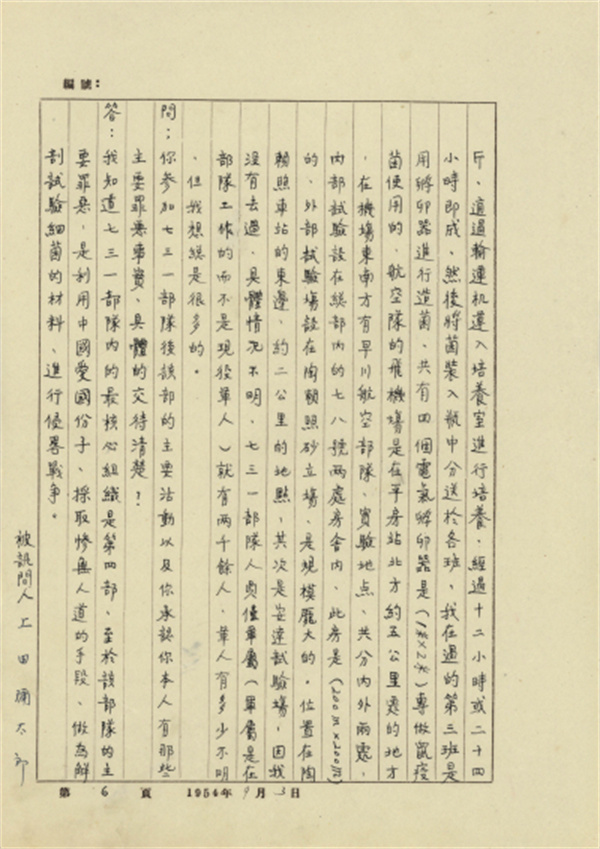 編號：
斤、適過輸運机運入培養室進行培養、經過十二小時或二十四
小時即成、然後將菌裝入瓶中分送於各班、我在過的第三班是
用孵卵器進行造菌、共有四個電氣孵卵器是（1米×2米）專做鼠疫
菌使用的、航空隊的飛機場是在平房站北方約五公里處的地方
、在機場東南方有早川航空部隊、實驗地点、共分內外兩處、
內部試驗設在総部內的七八號兩處房舍內、此房是（200m×200m）
的、外部試驗場設在陶賴照砂立場、是規模龐大的。位置在陶
賴照車站的東邊、約二公里的地點，其次是安達試驗場，因我
沒有去過、具體情况不明、七三一部隊人員僅軍屬（軍屬是在
部隊工作的而不是現役軍人）就有兩千餘人、軍人有多少不明
、但我想総是很多的。
問：你參加七三一部隊後該部的主要活動以及你承認你本人有那些
主要罪惡事實、具體的交待清楚？
答：我知道七三一部隊內的最核心組織是第四部、至於該部隊的主
要罪惡、是利用中國愛國份子、採取慘無人道的手段、做為解
剖試驗細菌的材料、進行侵畧戰爭。
被訊問人 上田彌太郎
第 6 頁 1954年9月3日